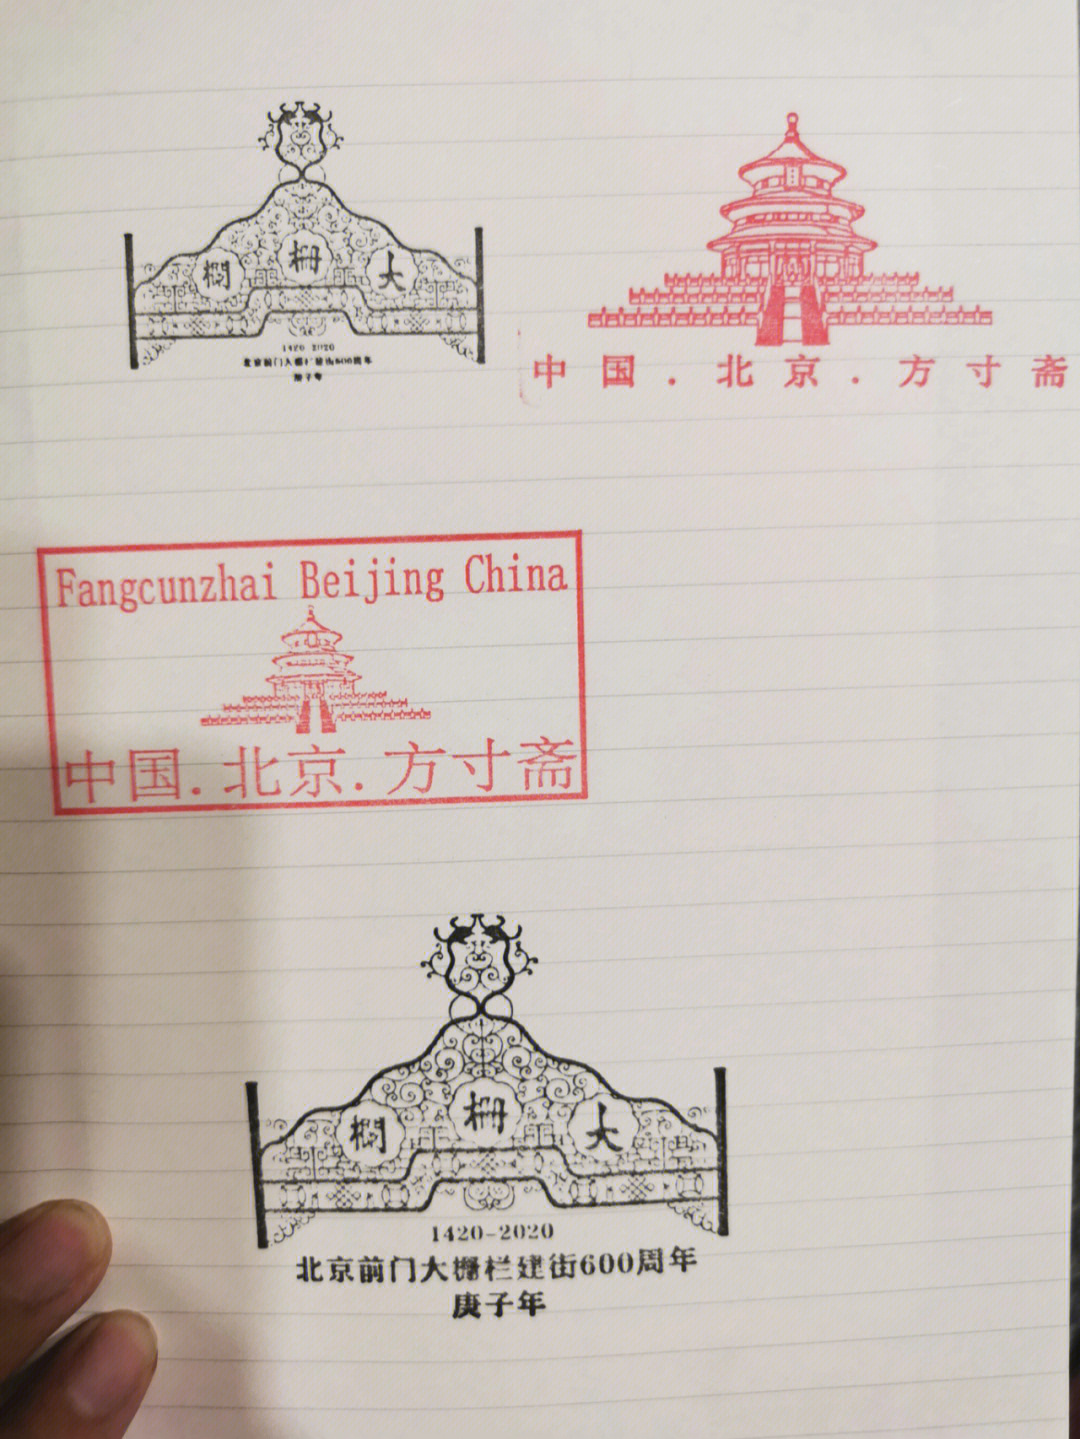 大栅欄
1420-2020
北京前门大栅栏建街600周年
庚子年
中国.北京.方寸斋
Fangcunzhai Beijing China
中国.北京.方寸斋
大栅欄
1420-2020
北京前门大栅栏建街600周年
庚子年